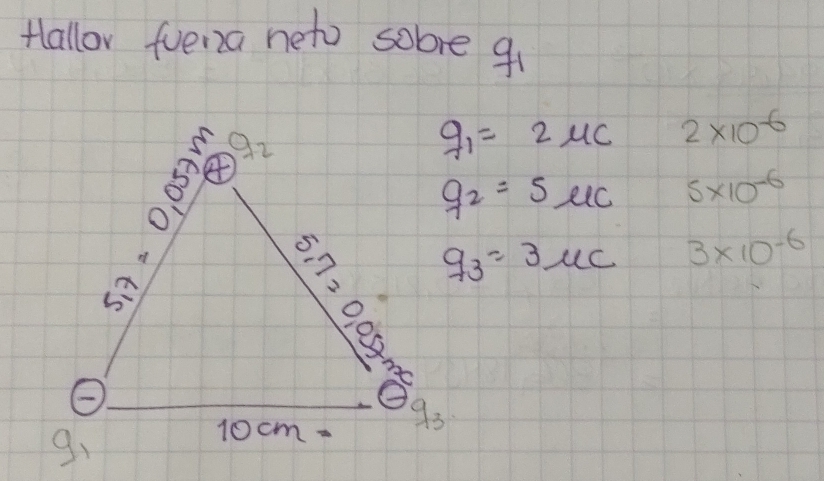 Hallar fuerza neta sobre q₁
q₂
q₁ = 2 μc 2×10⁻⁶
q₂ = 5 μc 5×10⁻⁶
q₃ = 3 μc 3×10⁻⁶
5,7 = 0,057m
5,7 = 0,057m
+
-
-
q₁
10cm
q₃